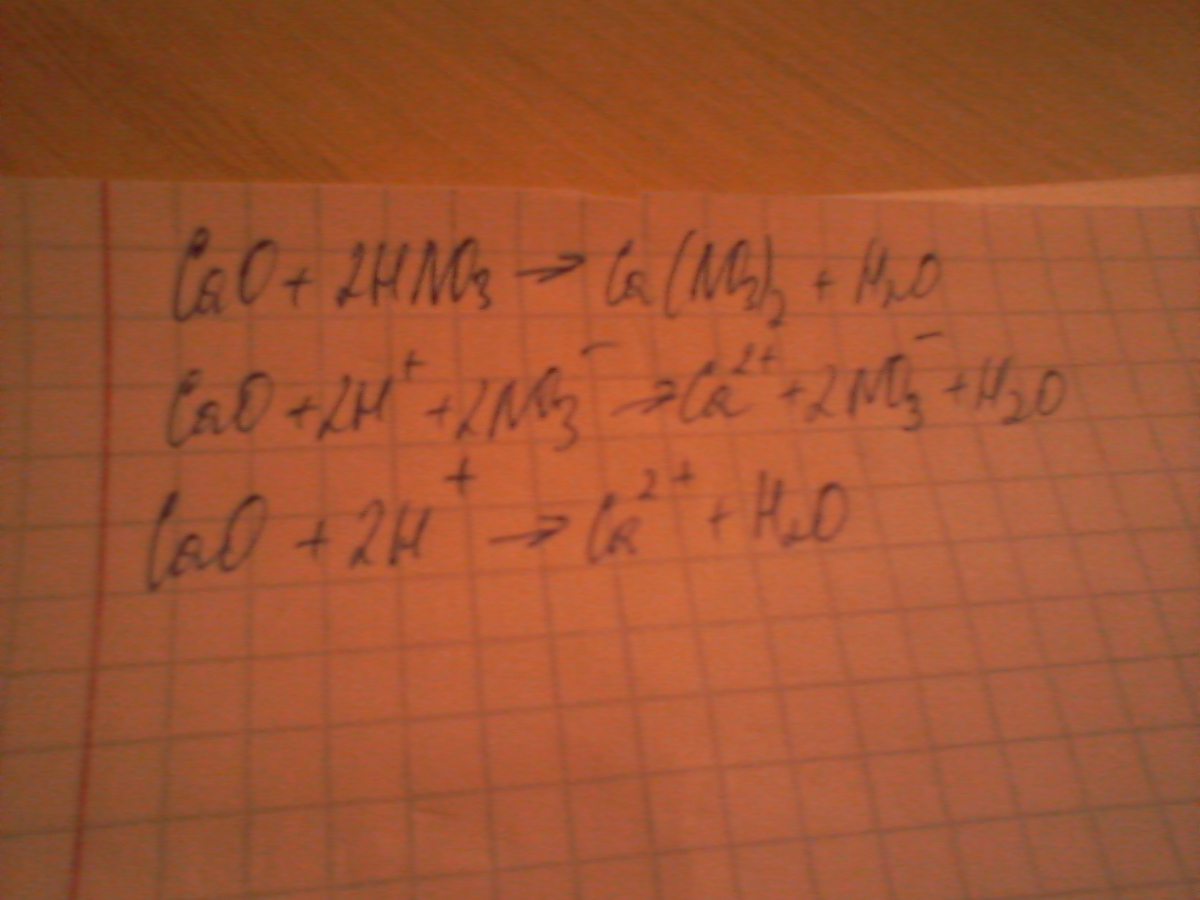 CaO + 2HNO₃ → Ca(NO₃)₂ + H₂O
CaO + 2H⁺ + 2NO₃⁻ → Ca²⁺ + 2NO₃⁻ + H₂O
CaO + 2H⁺ → Ca²⁺ + H₂O